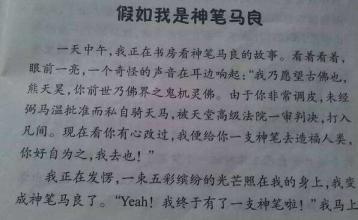 假如我是神笔马良
一天中午，我正在书房看神笔马良的故事。看着看着，
眼前一亮，一个奇怪的声音在耳边响起：“我乃愿望古佛也，
熊天昊，你前世乃佛界之鬼机灵佛。由于你非常调皮，未经
弼马温批准而私自骑天马，被天堂高级法院一审判决，打入
凡间。现在看你有心改过，我便给你一支神笔去造福人类，
你好自为之，我去也！”
我正在发愣，一束五彩缤纷的光芒照在我的身上，我变
成神笔马良了。“Yeah！我终于有了一支神笔啦！”我马上